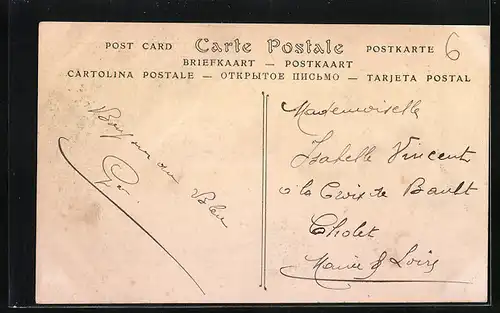 POST CARD Carte Postale POSTKARTE 6
BRIEFKAART — POSTKAART
CARTOLINA POSTALE — ОТКРЫТОЕ ПИСЬМО — TARJETA POSTAL
Mademoiselle
Isabelle Vincent
à la Croix de Bault
Cholet
Maine & Loire